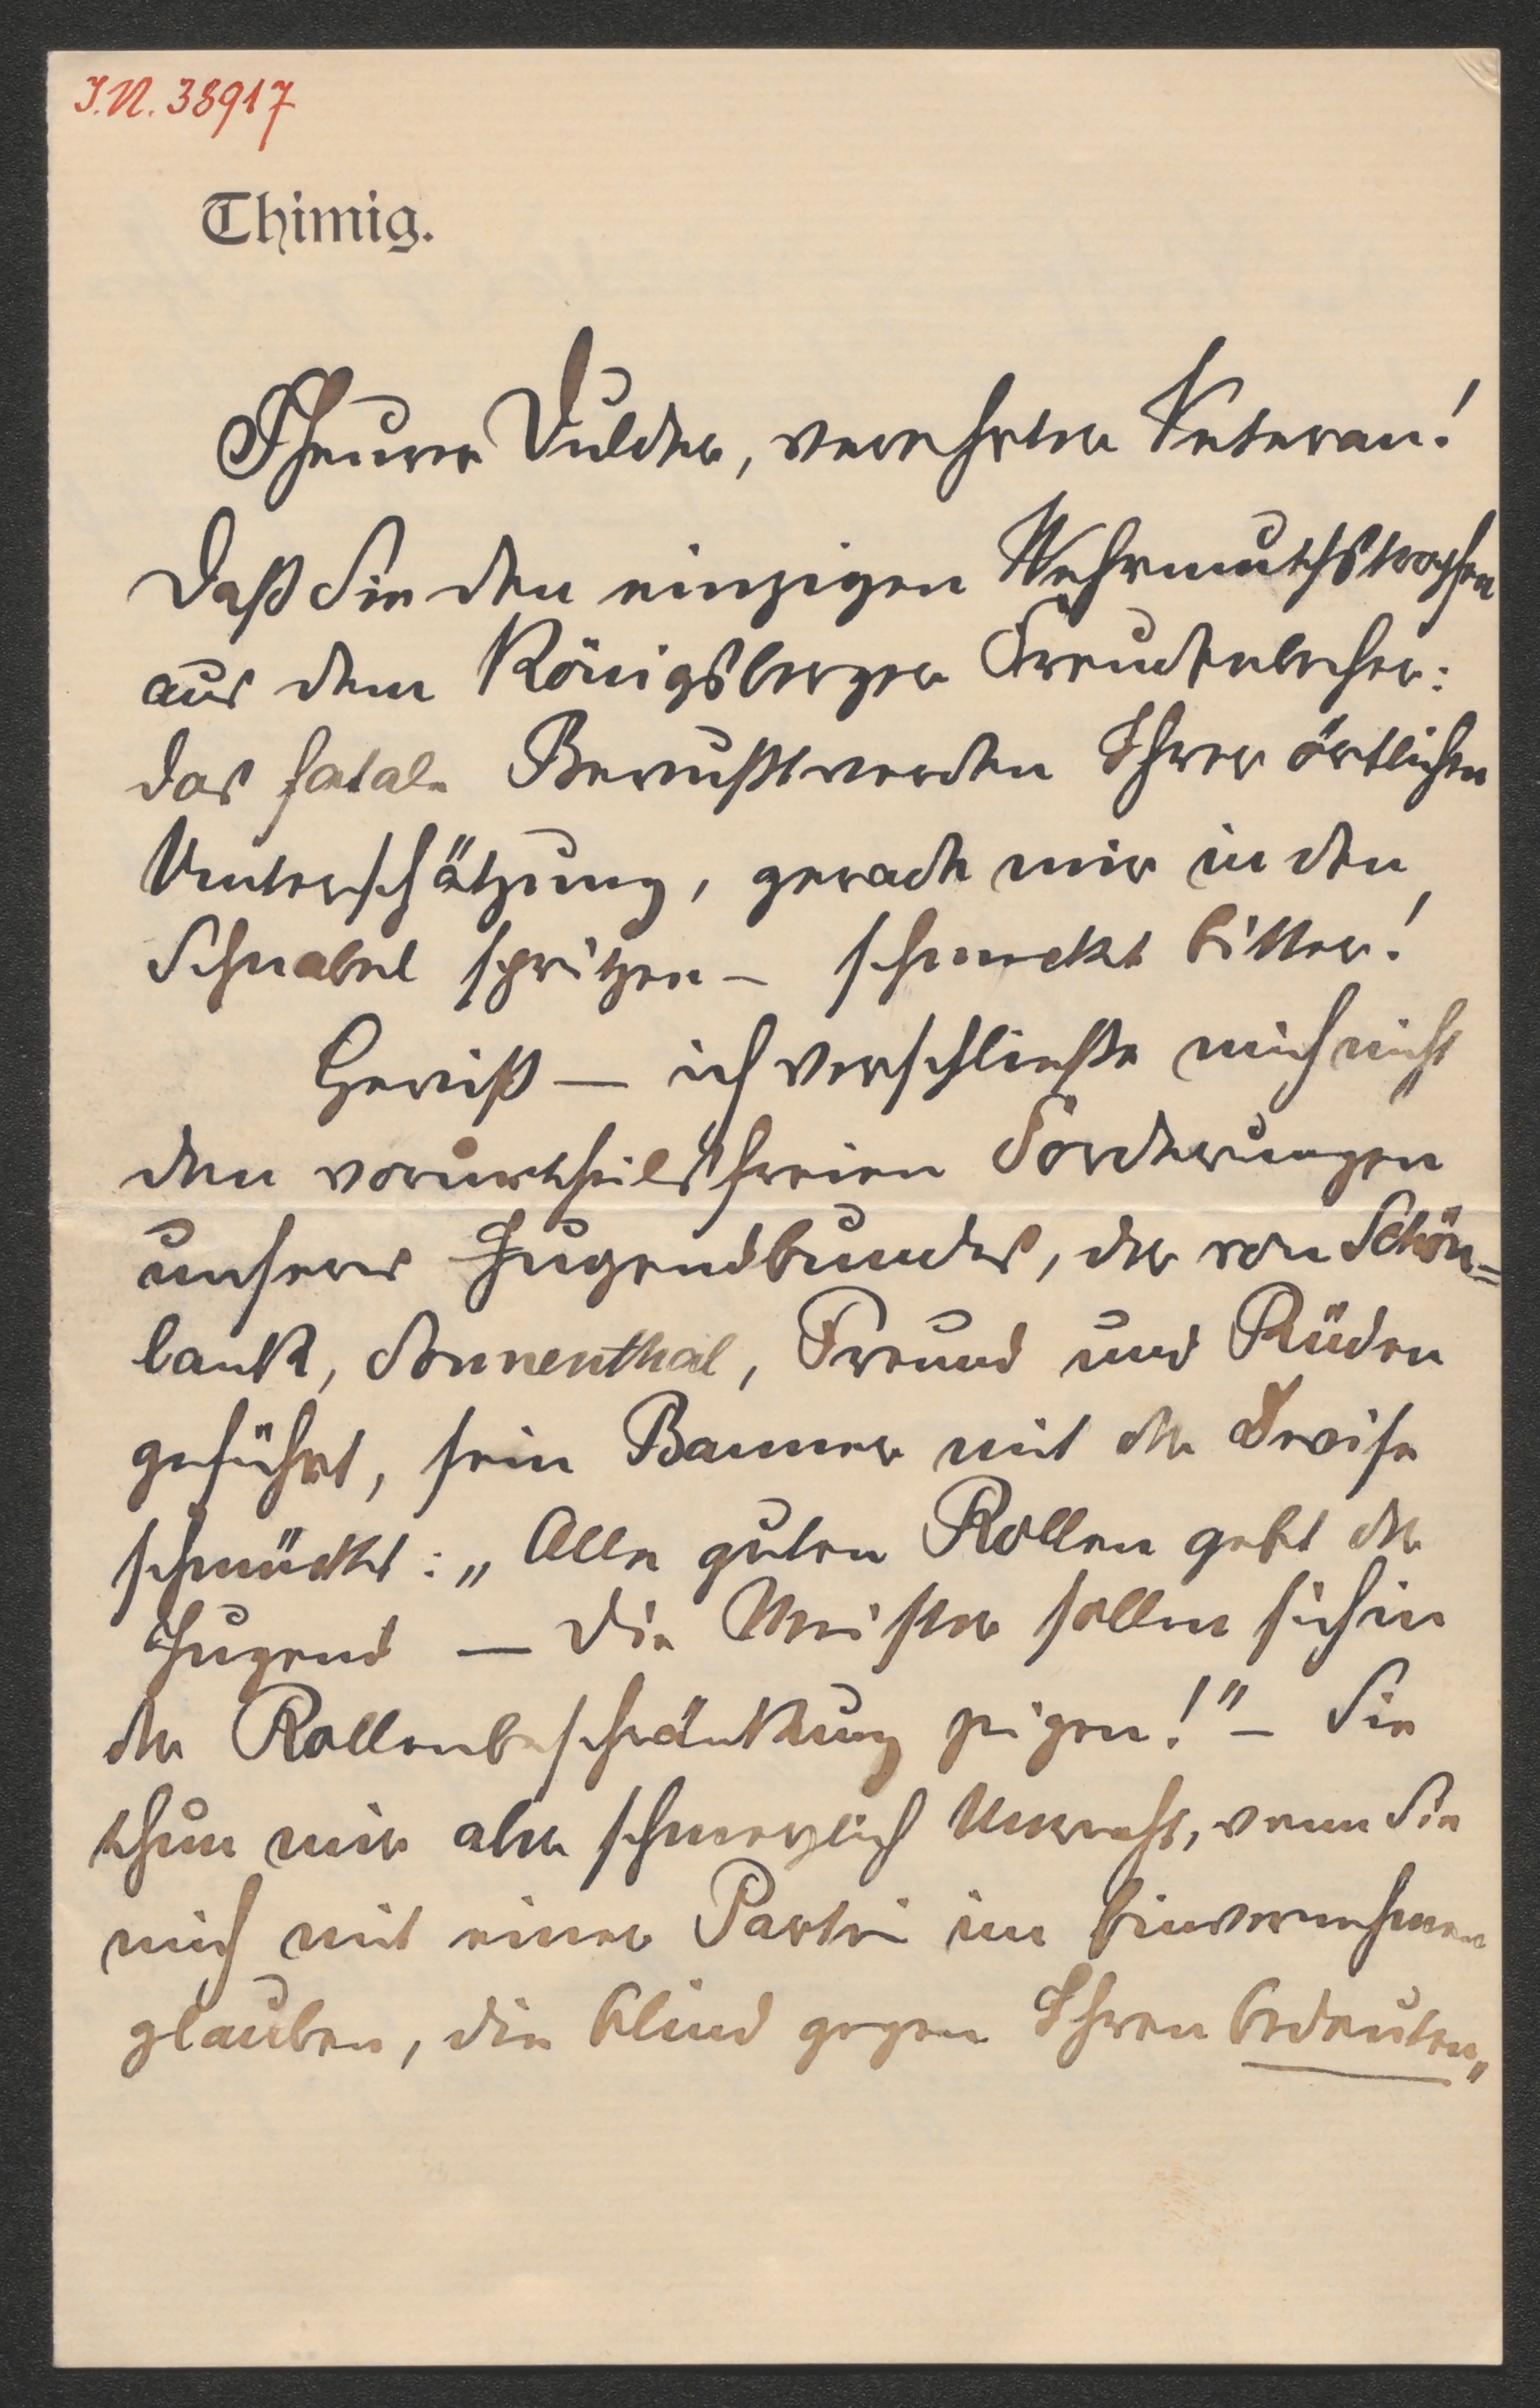 I.N. 38917
Thimig.
Theurer Dulder, verehrter Veteran!
Daß Sie den einzigen Wehrmuthstropfen
aus dem Königsberger Freudenbecher:
das fatale Bewußtwerden Ihrer örtlichen
Unterschätzung, gerade mir in den
Schnabel spritzen – schmeckt bitter!
Gewiß — ich verschließe mich nicht
den vorurtheilsfreien Forderungen
unseres Jugendbundes, der von Schön=
lank, Sonnenthal, Freund und Rüden
geführt, sein Banner mit der Devise
schmückt: „Alle guten Rollen gebt der
Jugend — die Meister sollen sich in
der Rollenbeschränkung zeigen!" – Sie
thun mir aber schmerzlich Unrecht, wenn Sie
mich mit einer Partei im Einvernehmen
glauben, die blind gegen Ihren bedeuten„